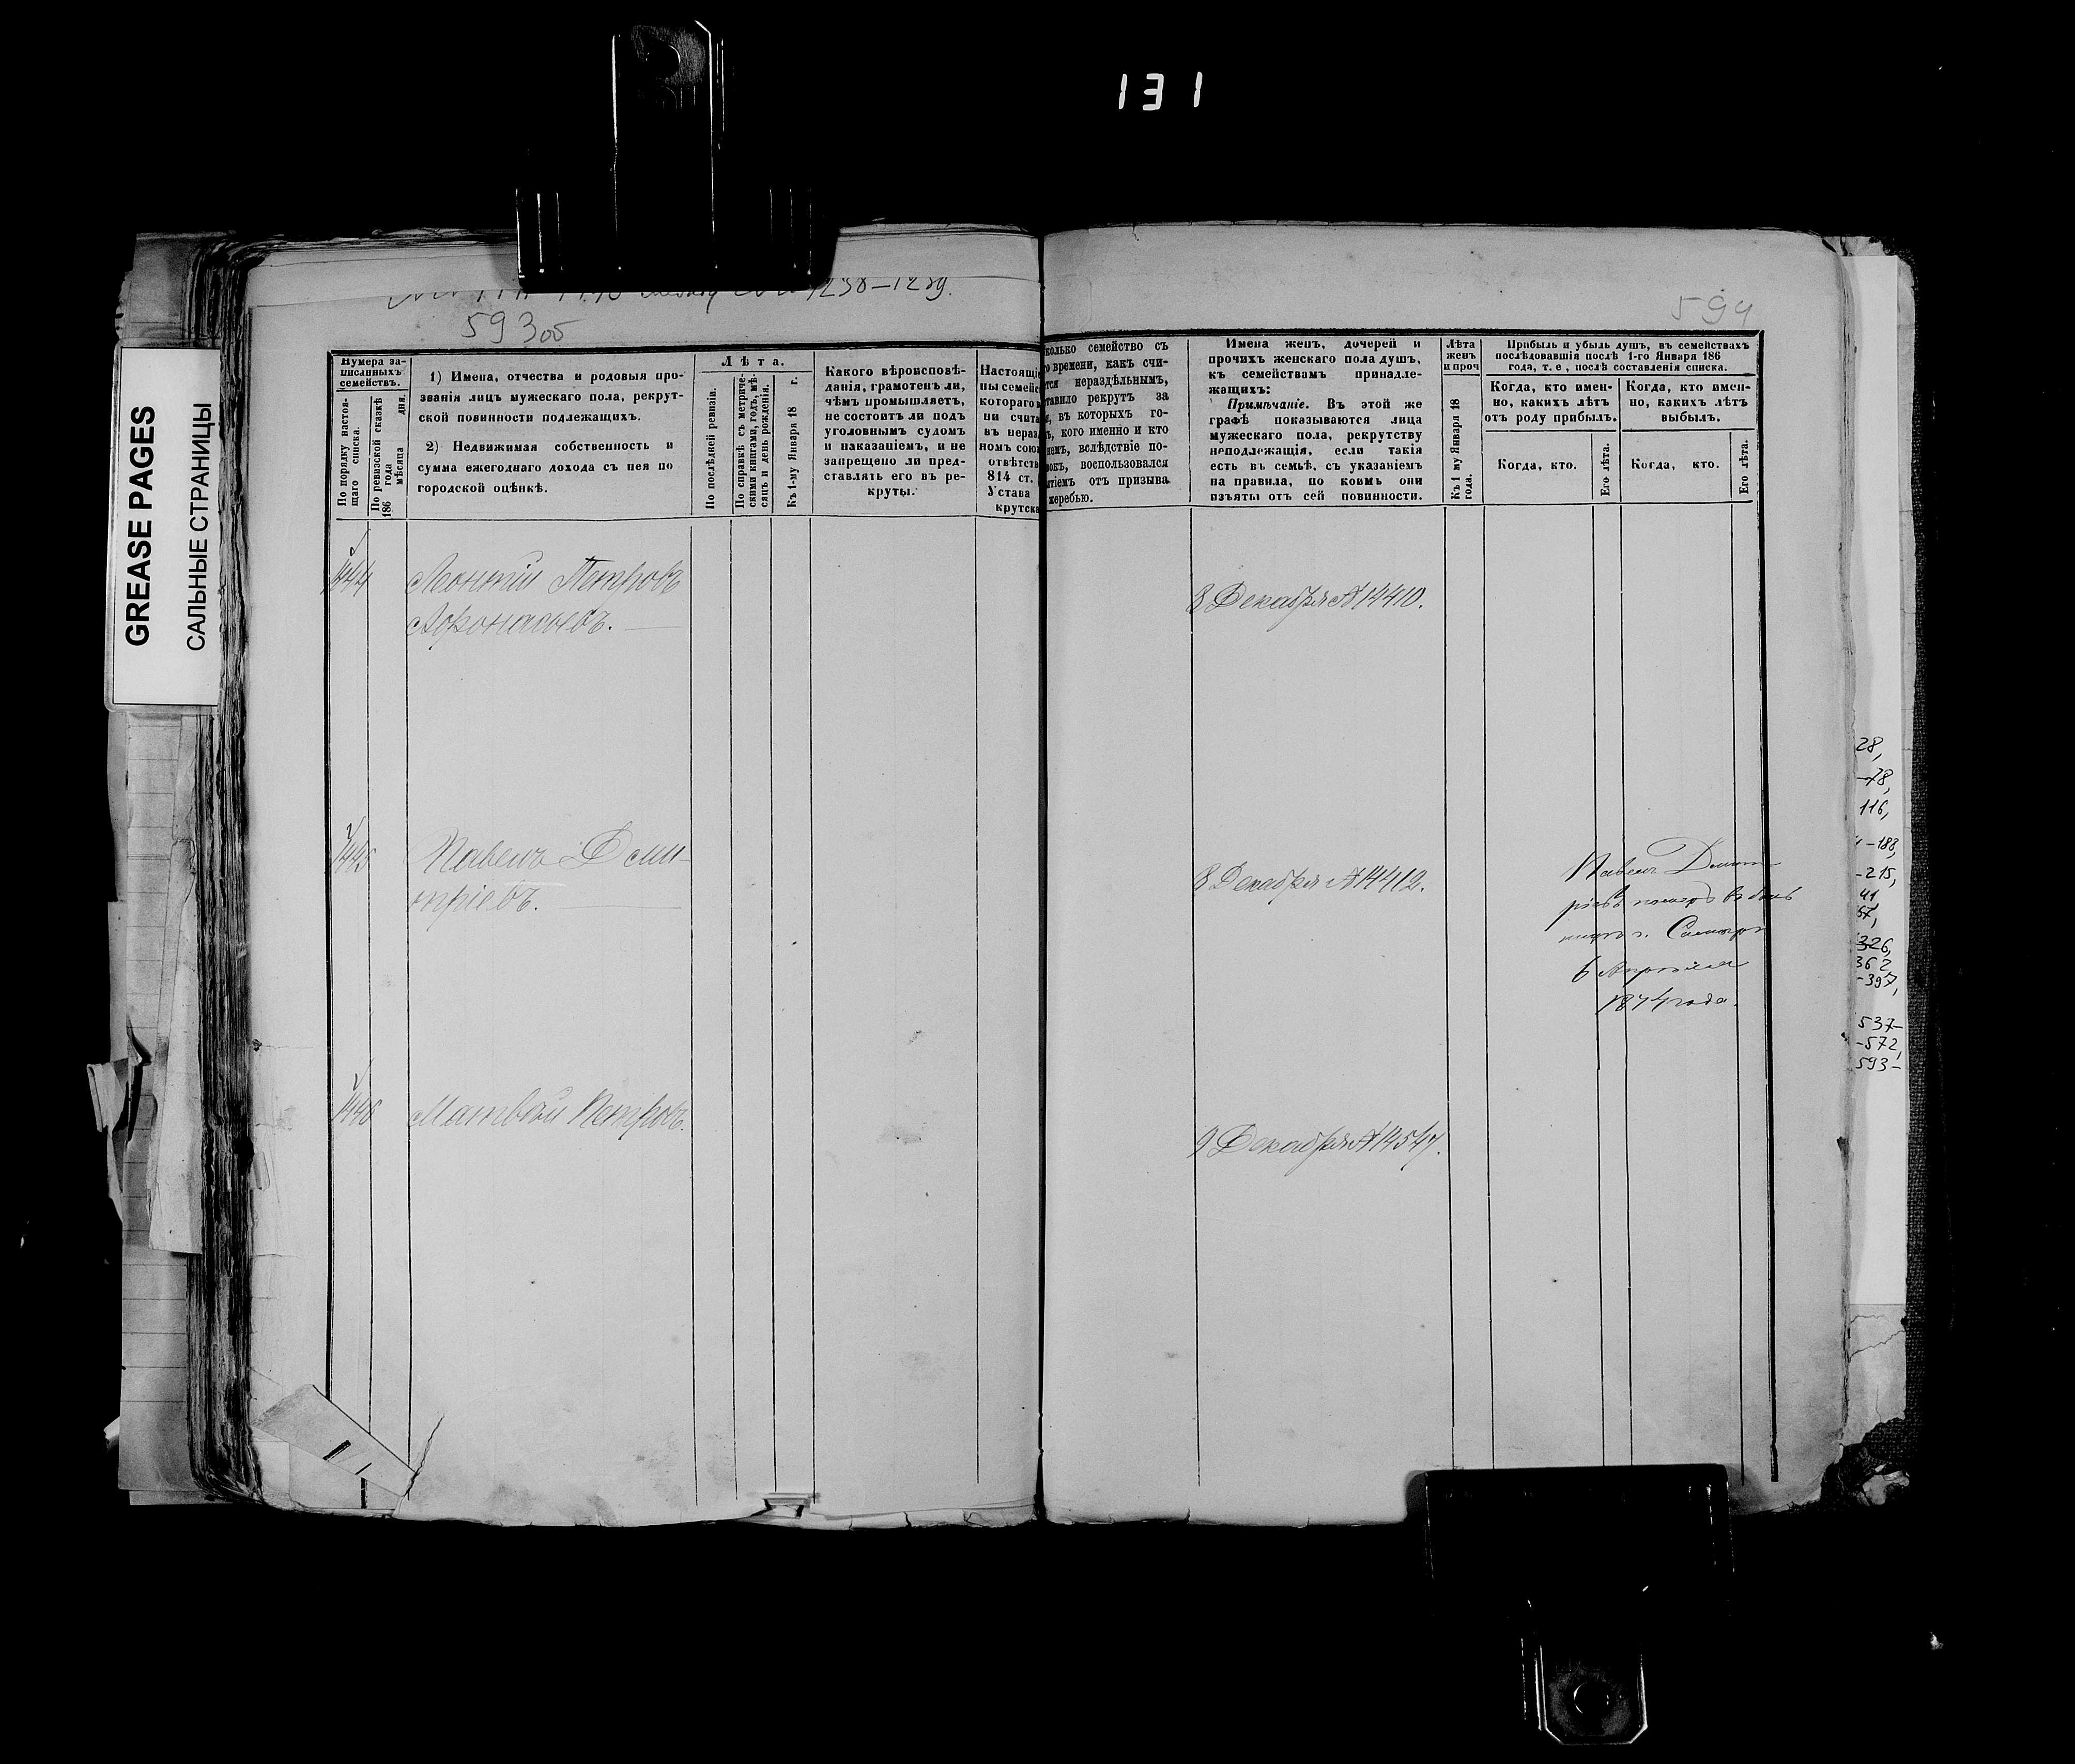 131
1238–1239.
593об
594
GREASE PAGES
САЛЬНЫЕ СТРАНИЦЫ
Нумера за-
писанныхъ
семействъ.
По порядку настоя-
щаго списка.
По ревизской сказкѣ
186 года
мѣсяца дня.
1) Имена, отчества и родовыя про-
званія лицъ мужескаго пола, рекрут-
ской повинности подлежащихъ.
2) Недвижимая собственность и
сумма ежегоднаго дохода съ нея по
городской оцѣнкѣ.
Лѣта.
По послѣдней ревизіи.
По справкѣ съ метриче-
скими книгами, годъ, мѣ-
сяцъ и день рожденія.
Къ 1-му Января 18 г.
Какого вѣроисповѣ-
данія, грамотенъ ли,
чѣмъ промышляетъ,
не состоитъ ли подъ
уголовнымъ судомъ
и наказаніемъ, и не
запрещено ли пред-
ставлять его въ ре-
круты.
Настоящі
ны семейс
котораго
ни счита
въ нераз
номъ сою
отвѣтств
814 ст.
Устава
крутска
колько семейство съ
го времени, какъ счи-
тся нераздѣльнымъ,
тавило рекрутъ за
въ которыхъ го-
ъ, кого именно и кто
немъ, вслѣдствіе по-
вокъ, воспользовался
тіемъ отъ призыва
жеребью.
Имена женъ, дочерей и
прочихъ женскаго пола душъ,
къ семействамъ принадле-
жащихъ:
Примѣчаніе. Въ этой же
графѣ показываются лица
мужескаго пола, рекрутству
неподлежащія, если такія
есть въ семьѣ, съ указаніемъ
на правила, по коимъ они
изъяты отъ сей повинности.
Лѣта
женъ
и проч
Къ 1 му Января 18
года.
Прибыль и убыль душъ, въ семействахъ
послѣдовавшія послѣ 1-го Января 186
года, т. е, послѣ составленія списка.
Когда, кто имен-
но, какихъ лѣтъ
отъ роду прибылъ.
Когда, кто имен-
но, какихъ лѣтъ
выбылъ.
Когда, кто.
Его лѣта.
Когда, кто.
Его лѣта.
1444
Леонтій Петровъ
Афонасьевъ.
8 Декабря № 14410.
1445
Павелъ Дми-
тріевъ.
8 Декабря № 14412.
Павелъ Дмит
ріевъ померъ въ боль
ницѣ г. Самары
6 Апрѣля
1874 года.
1446
Матвѣй Петровъ.
9 Декабря № 14547.
28,
-78,
116,
-188,
-215,
41
57,
326,
362
-397,
537-
-572,
593-